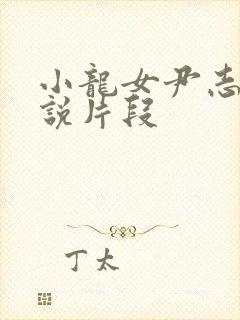 小龍女尹志
說片段
丁太